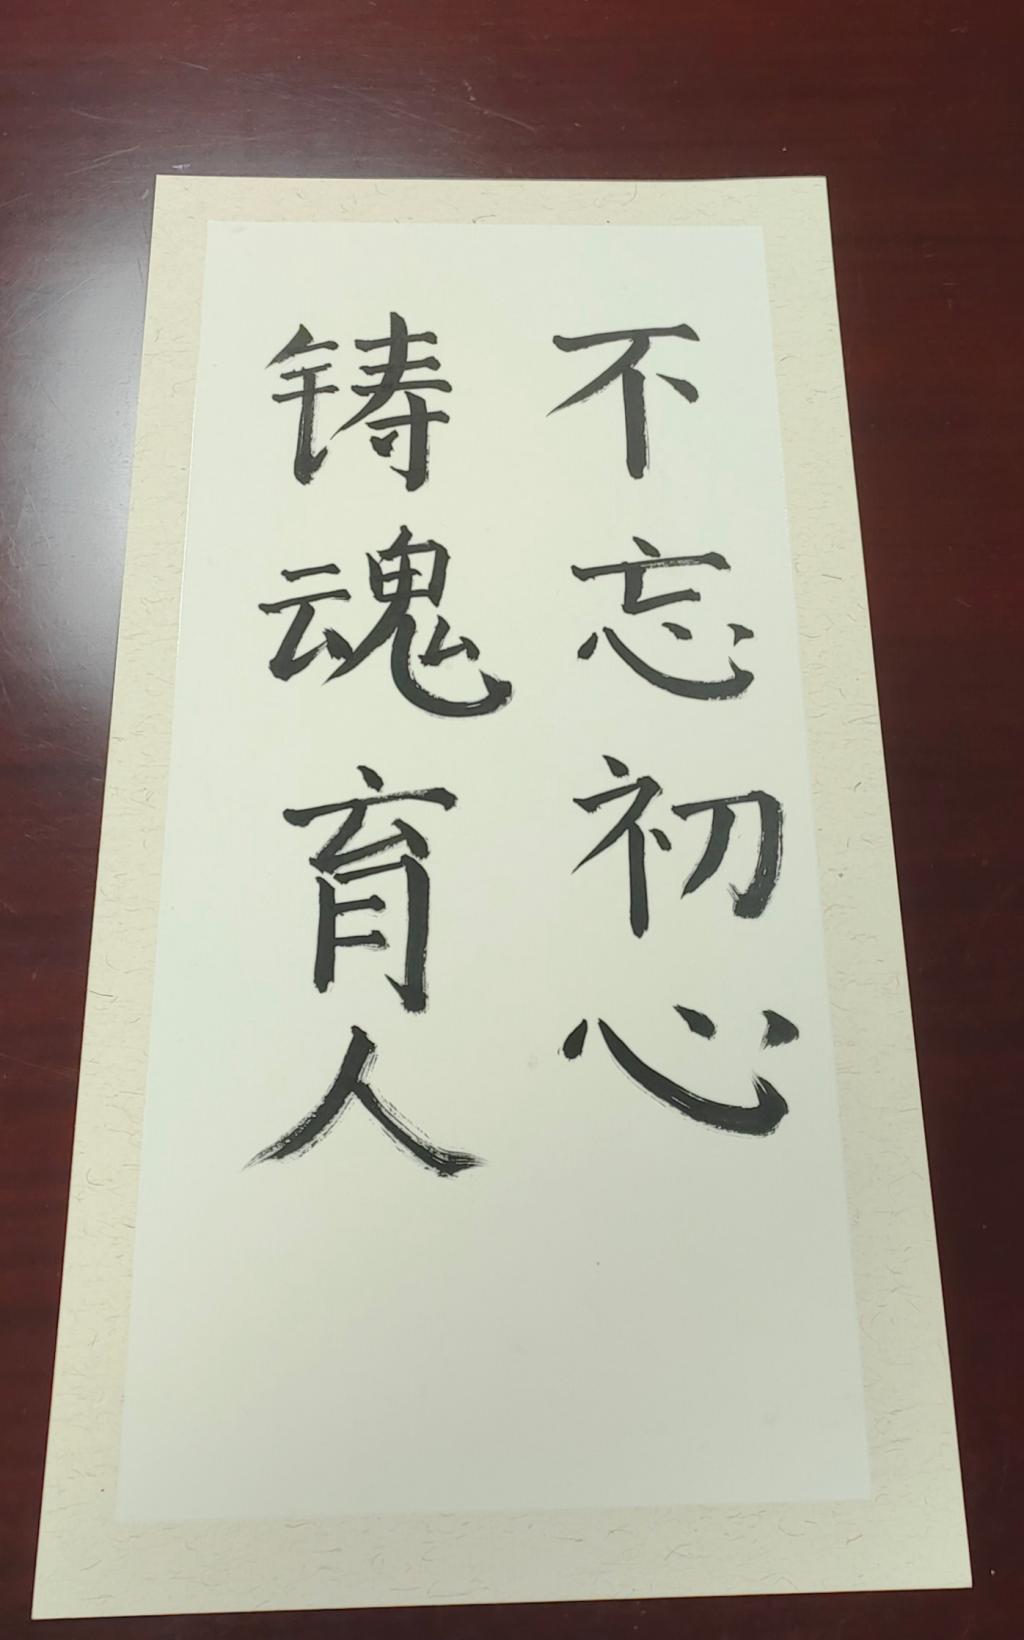 不忘初心
铸魂育人